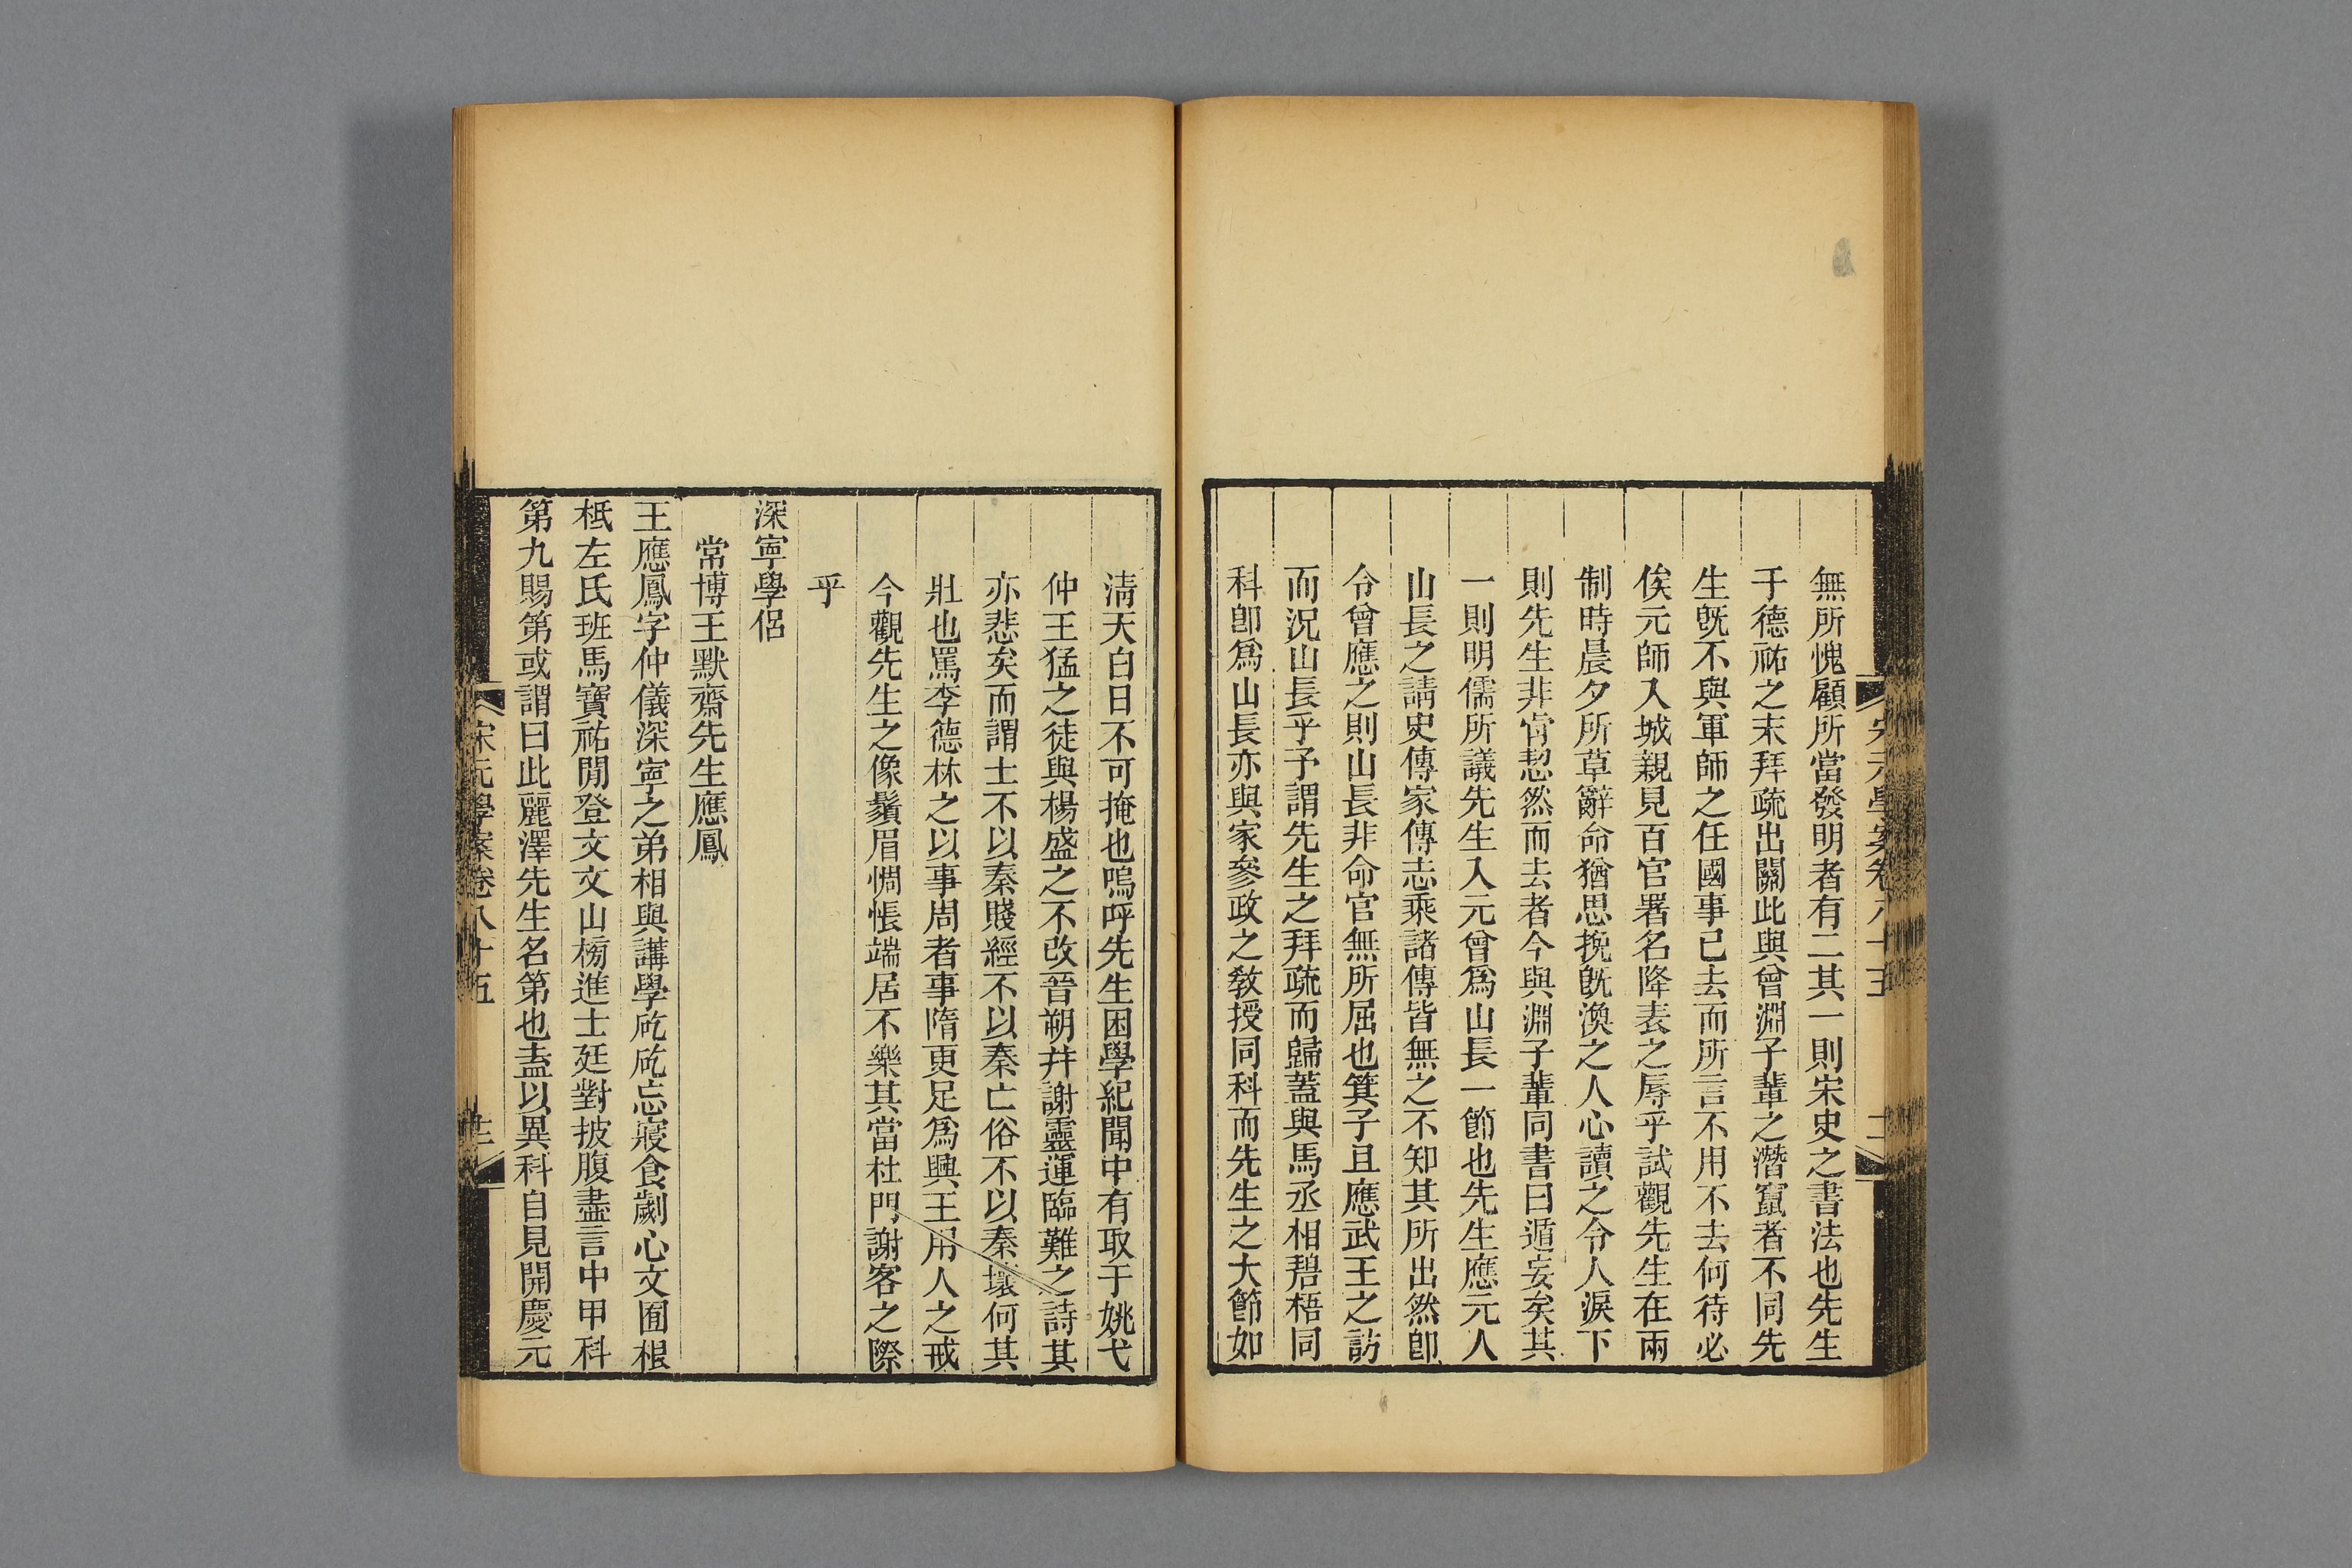 無所愧顧所當發明者有二其一則宋史之書法也先生
于德祐之末拜疏出關此與曾淵子輩之潛竄者不同先
生旣不與軍師之任國事已去而所言不用不去何待必
俟元師入城親見百官署名降表之辱乎試觀先生在兩
制時晨夕所草辭命猶思挽旣渙之人心讀之令人淚下
則先生非肎恝然而去者今與淵子輩同書曰遁妄矣其
一則明儒所議先生入元曾爲山長一節也先生應元人
山長之請史傳家傳志乘諸傳皆無之不知其所出然卽
令曾應之則山長非命官無所屈也箕子且應武王之訪
而況山長乎予謂先生之拜疏而歸蓋與馬丞相碧梧同
科卽爲山長亦與家參政之敎授同科而先生之大節如
宋元學案卷八十五
淸天白日不可掩也嗚呼先生困學紀聞中有取于姚弋
仲王猛之徒與楊盛之不改晉朔幷謝靈運臨難之詩其
亦悲矣而謂士不以秦賤經不以秦亡俗不以秦壞何其
壯也罵李德林之以事周者事隋更足爲興王用人之戒
今觀先生之像鬚眉惆悵端居不樂其當杜門謝客之際
乎
深寧學侶
常博王默齋先生應鳳
王應鳳字仲儀深寧之弟相與講學矻矻忘寢食劌心文囿根
柢左氏班馬寶祐閒登文文山榜進士廷對披腹盡言中甲科
第九賜第或謂曰此麗澤先生名第也盍以異科自見開慶元
宋元學案卷八十五